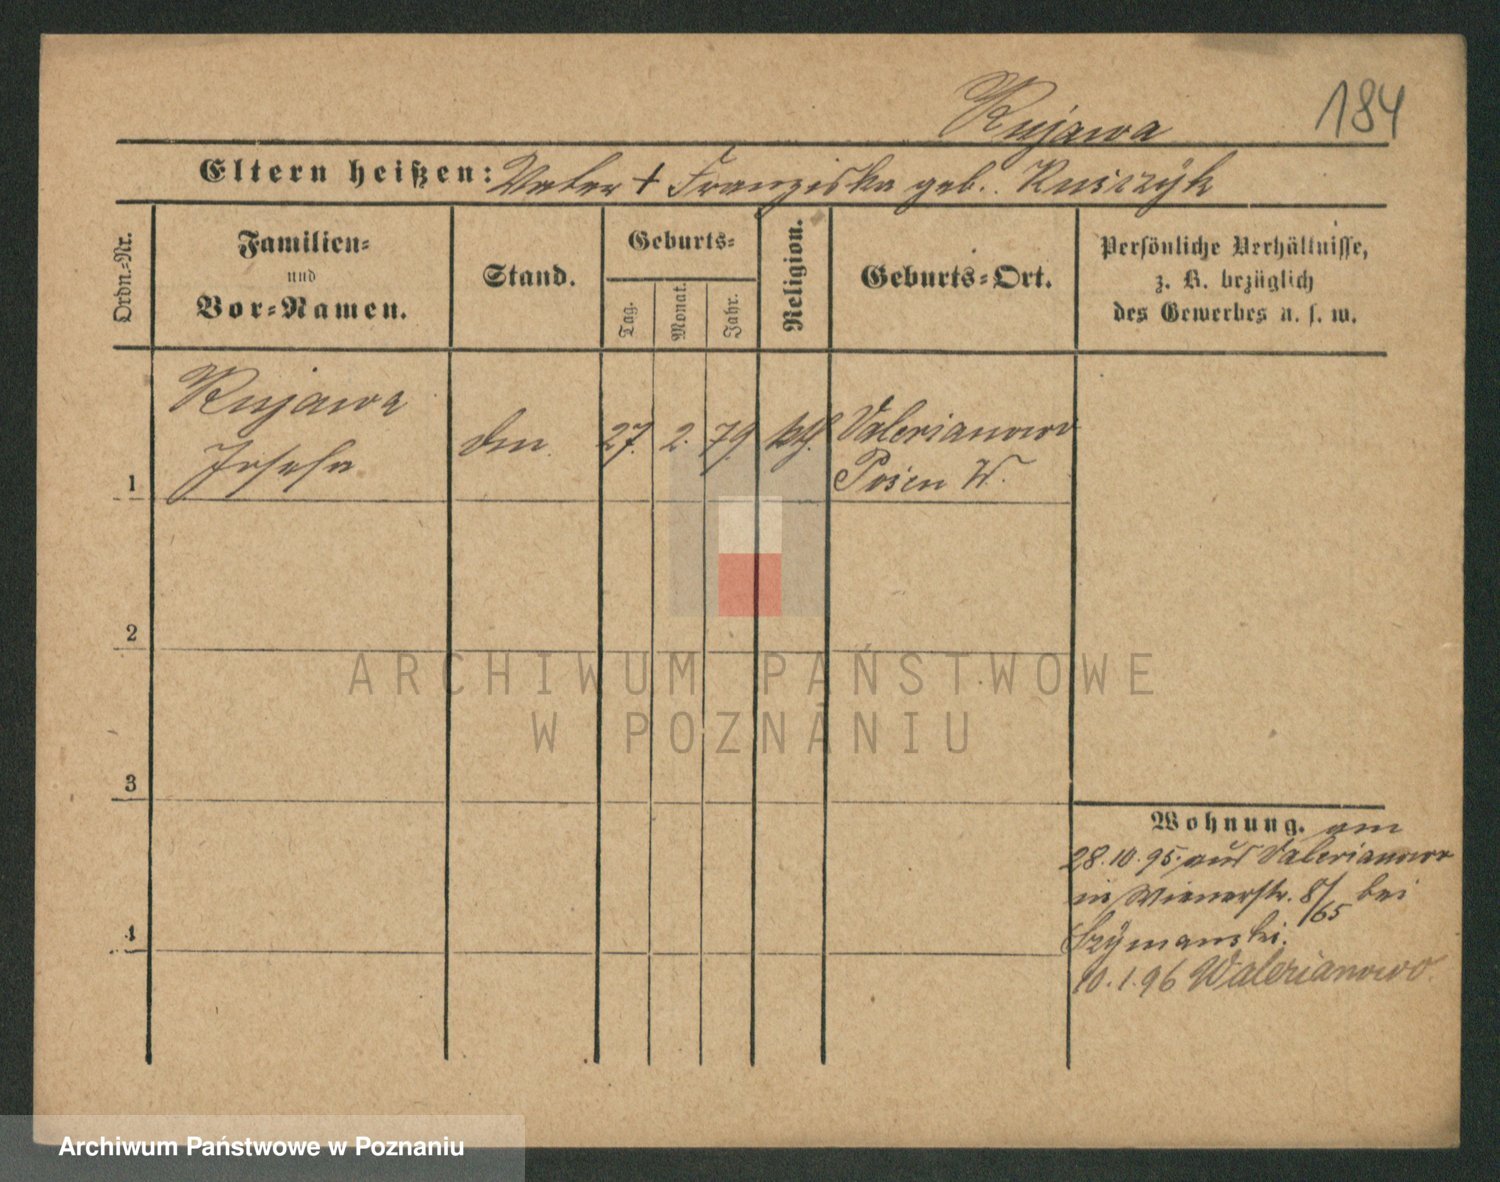 Kujawa
184
Eltern heißen: Vater + Franziska geb. Kuszzÿk
Ordn.-Nr.
Familien-
und
Vor-Namen.
Stand.
Geburts-
Tag.
Monat.
Jahr.
Religion.
Geburts-Ort.
Persönliche Verhältnisse,
z. B. bezüglich
des Gewerbes u. s. w.
1
Kujawa
Josefa
27. 2. 79 kth.
Valerianowo
Posen W.
2
3
4
Wohnung. am
28.10.95. aus Valerianowo
in Wienerstr. 8/65 bei
Szÿmanski.
10.1.96 Walerianowo.
ARCHIWUM PAŃSTWOWE
W POZNANIU
Archiwum Państwowe w Poznaniu